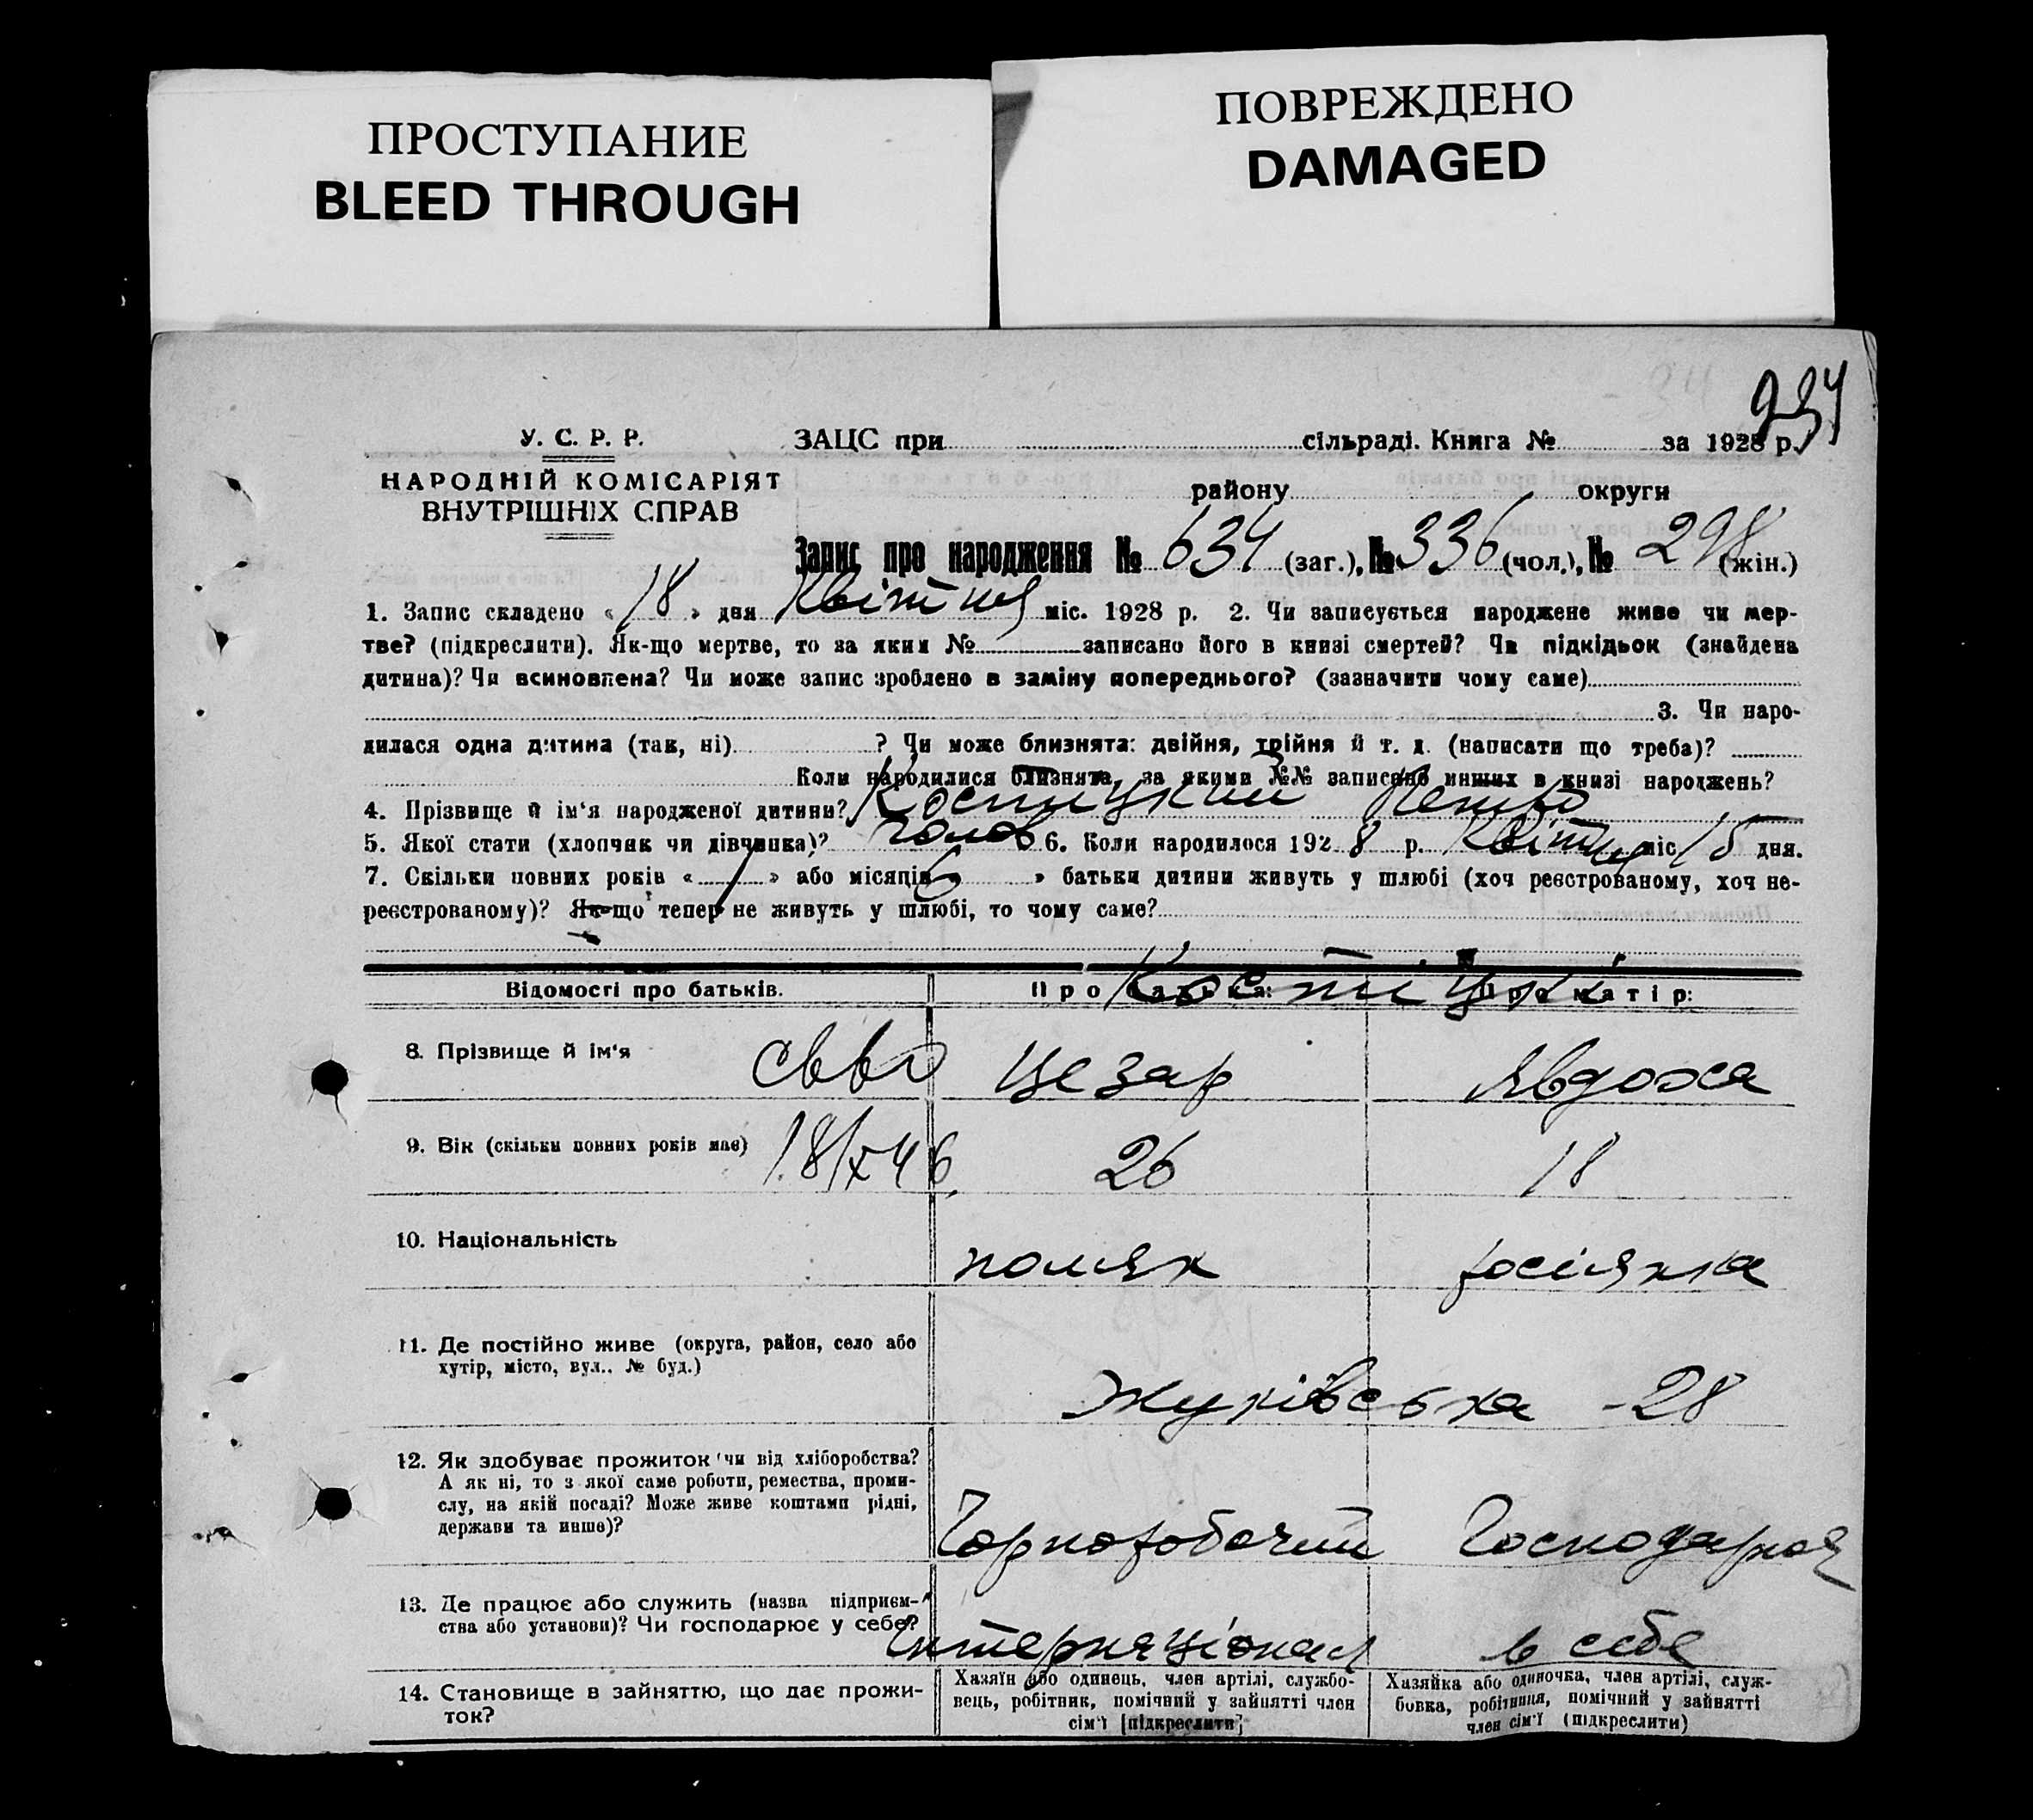 ПРОСТУПАНИЕ
BLEED THROUGH
ПОВРЕЖДЕНО
DAMAGED
934
У. С. Р. Р.
НАРОДНІЙ КОМІСАРІЯТ
ВНУТРІШНІХ СПРАВ
ЗАЦС при сільраді. Книга № за 1928 р.
району округи
Запис про народження № 634 (заг.), № 336 (чол.), № 298 (жін.)
1. Запис складено « 18 » дня Квітня міс. 1928 р. 2. Чи записується народжене живе чи мер-
тве? (підкреслити). Як-що мертве, то за яким № записано його в книзі смертей? Чи підкідьок (знайдена
дитина)? Чи всиновлена? Чи може запис зроблено в заміну попереднього? (зазначити чому саме)
3. Чи наро-
дилася одна дитина (так, ні) ? Чи може близнята: двійня, трійня й т. д. (написати що треба)?
Коли народилися близнята, за якими №№ записано инших в книзі народжень?
4. Прізвище й ім'я народженої дитини? Костицкий Петро
5. Якої стати (хлопчик чи дівчинка)? чолов 6. Коли народилося 1928 р. Квітня міс 15 дня.
7. Скільки повних років « / » або місяців « 6 » батьки дитини живуть у шлюбі (хоч реєстрованому, хоч не-
реєстрованому)? Як-що тепер не живуть у шлюбі, то чому саме?
Відомості про батьків. Про батька: Про матір:
Костіцкі
8. Прізвище й ім'я Цезар Явдоха
9. Вік (скільки повних років має) 18/X 46. 26 18
10. Національність поляк росіянка
11. Де постійно живе (округа, район, село або
хутір, місто, вул.. № буд.)
Жуківська - 28
12. Як здобуває прожиток чи від хліборобства?
А як ні, то з якої саме роботи, ремества, проми-
слу, на якій посаді? Може живе коштами рідні,
держави та инше)?
Чорноробочий Господарює
13. Де працює або служить (назва підприєм-
ства або установи)? Чи господарює у себе?
Інтернаціонал в себе
14. Становище в зайняттю, що дає прожи-
ток?
Хазяїн або одинець, член артілі, службо-
вець, робітник, помічний у зайнятті член
сім'ї [підкреслити]
Хазяйка або одиночка, член артілі, служ-
бовка, робітниця, помічний у зайнятті
член сім'ї (підкреслити)